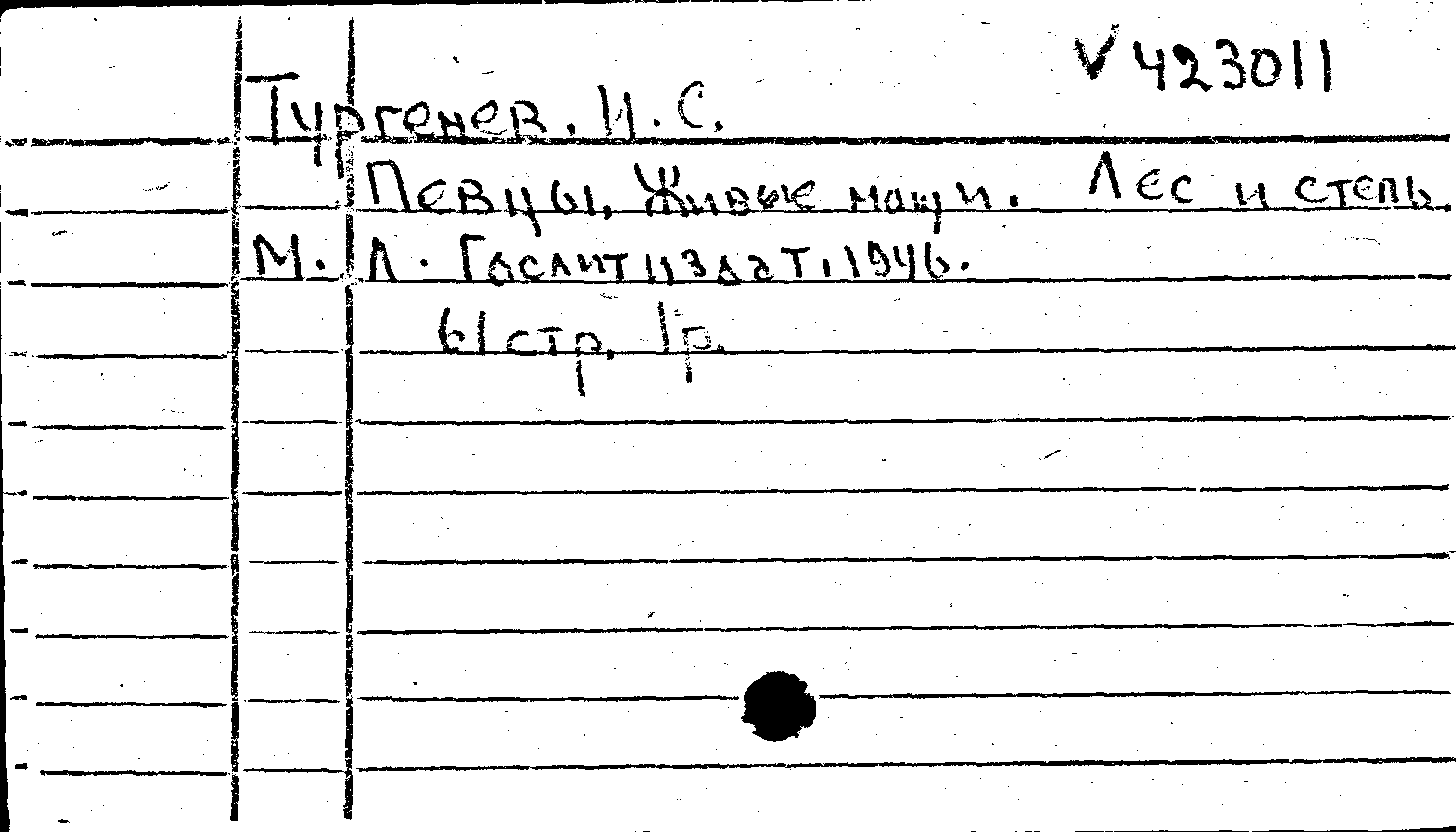 V 423011
Тургенев. И. С.
Певцы. Живые мощи. Лес и степь.
М. Л. Гослитиздат. 1946.
61 стр. 1р.